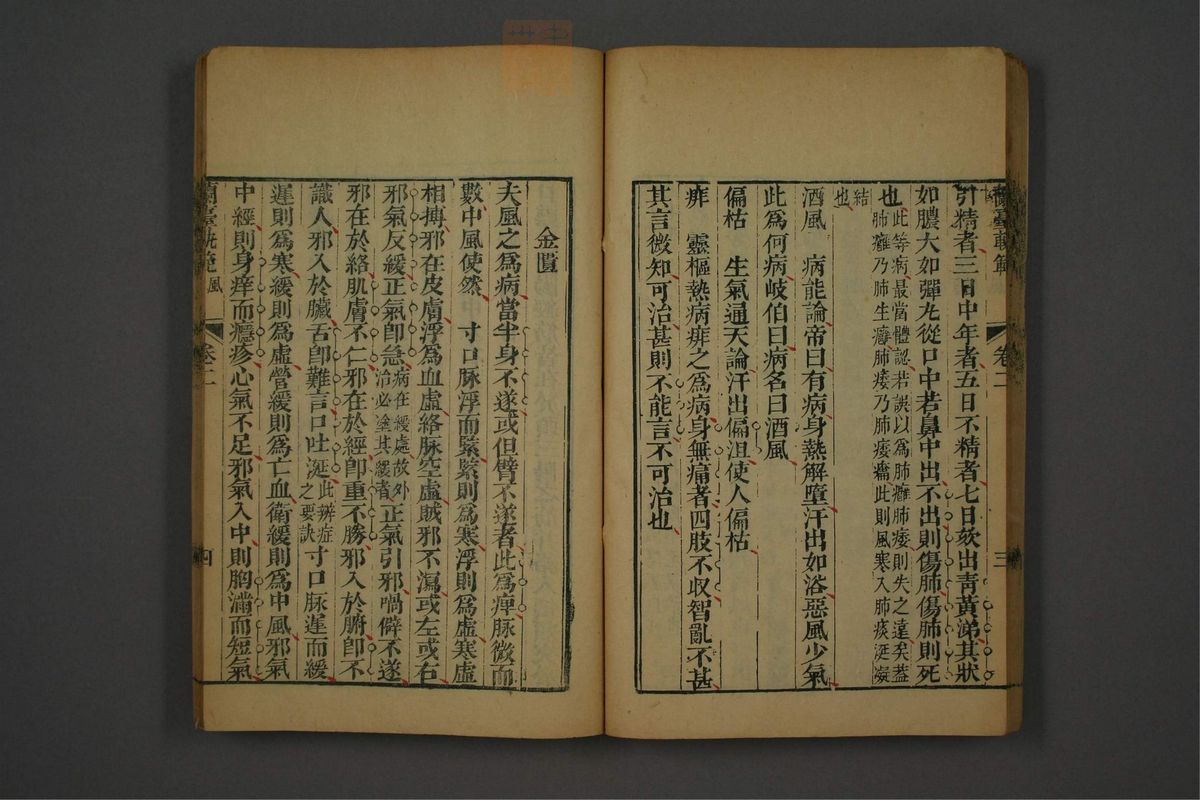 蘭臺軌範 卷二 三
引精者三日中年者五日不精者七日欬出靑黃涕其狀
如膿大如彈丸從口中若鼻中出不出則傷肺傷肺則死
也此等病最當體認若誤以爲肺癰肺痿則失之遠矣葢
肺癰乃肺生癰肺痿乃肺痿癟此則風寒入肺痰涎凝
結
也
酒風 病能論帝曰有病身熱解墮汗出如浴惡風少氣
此爲何病岐伯曰病名曰酒風
偏枯 生氣通天論汗出偏沮使人偏枯
痱 靈樞熱病痱之爲病身無痛者四肢不收智亂不甚
其言微知可治甚則不能言不可治也
金匱
夫風之爲病當半身不遂或但臂不遂者此爲痺脉微而
數中風使然 寸口脉浮而緊緊則爲寒浮則爲虛寒虛
相搏邪在皮膚浮爲血虛絡脉空虛賊邪不瀉或左或右
邪氣反緩正氣卽急病在緩處故外
治必塗其緩者正氣引邪喎僻不遂
邪在於絡肌膚不仁邪在於經卽重不勝邪入於腑卽不
識人邪入於臟舌卽難言口吐涎此辨症
之要訣寸口脉遲而緩
遲則爲寒緩則爲虛營緩則爲亡血衛緩則爲中風邪氣
中經則身痒而癮疹心氣不足邪氣入中則胸滿而短氣
蘭臺軌範 風 卷二 四